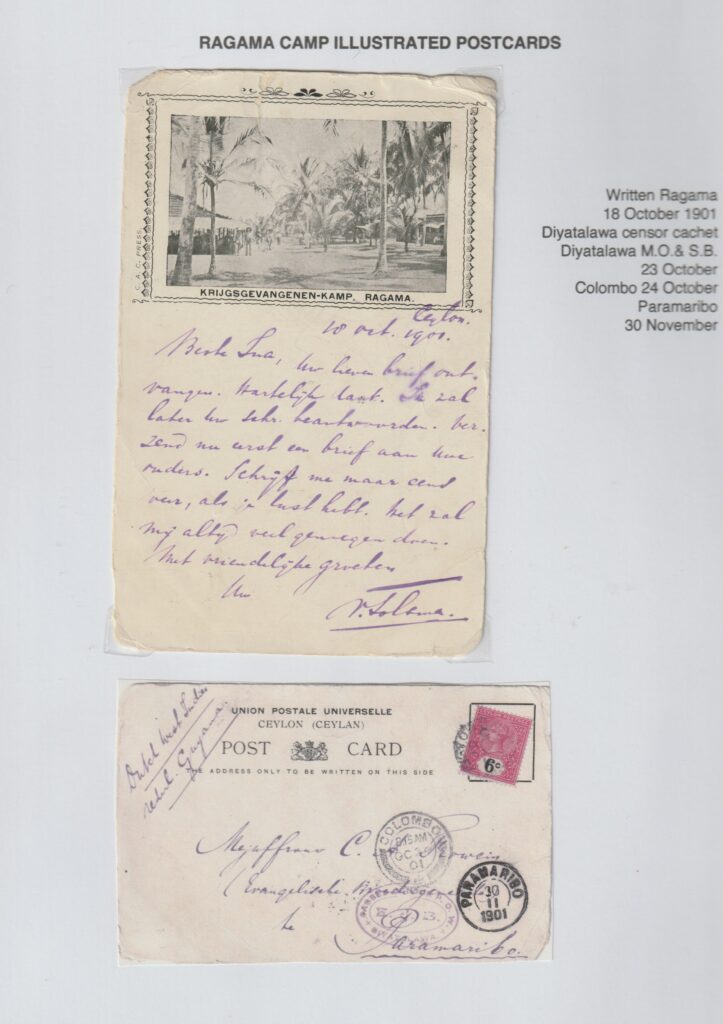 RAGAMA CAMP ILLUSTRATED POSTCARDS
Written Ragama
18 October 1901
Diyatalawa censor cachet
Diyatalawa M.O.& S.B.
23 October
Colombo 24 October
Paramaribo
30 November
C. A. C. PRESS.
KRIJGSGEVANGENEN-KAMP, RAGAMA.
Ceylon.
18 Oct. 1901.
Beste Ina, Uw lieven brief ont-
vangen. Hartelijk dank. Ik zal
later Uw schr. beantwoorden. Ver-
zend nu eerst een brief aan Uwe
ouders. Schrijf me maar eens
weer, als je lust hebt. Het zal
mij altijd veel genoegen doen.
Met vriendelijke groeten
Uw
Dutch West Indies
UNION POSTALE UNIVERSELLE
CEYLON (CEYLAN)
POST CARD
THE ADDRESS ONLY TO BE WRITTEN ON THIS SIDE
6c
COLOMBO
OC
01
Mejuffrouw C.
Evangelische
te
Paramaribo.
PARAMARIBO
30
11
1901